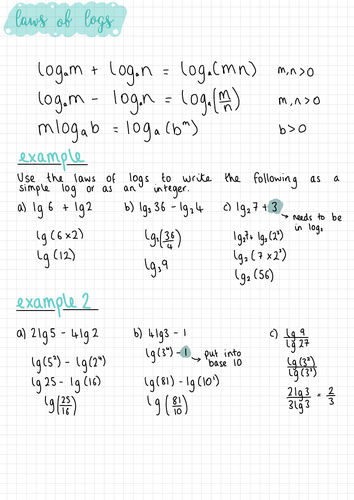 laws of logs
logₐm + logₐn = logₐ(mn) m,n>0
logₐm - logₐn = logₐ(m/n) m,n>0
mlogₐb = logₐ(bᵐ) b>0
example
Use the laws of logs to write the following as a
simple log or as an integer.
a) lg 6 + lg2
lg (6×2)
lg (12)
b) lg₃ 36 - lg₃4
lg₃(36/4)
lg₃9
c) lg₂7 + 3
needs to be
in log₂
lg₂7 + lg₂(2³)
lg₂ (7 × 2³)
lg₂ (56)
example 2
a) 2lg5 - 4lg2
lg(5²) - lg(2⁴)
lg25 - lg(16)
lg(25/16)
b) 4lg3 - 1
lg(3⁴) - 1
put into
base 10
lg(81) - lg(10¹)
lg(81/10)
c) lg 9/lg 27
lg(3²)/lg(3³)
2lg3/3lg3 = 2/3